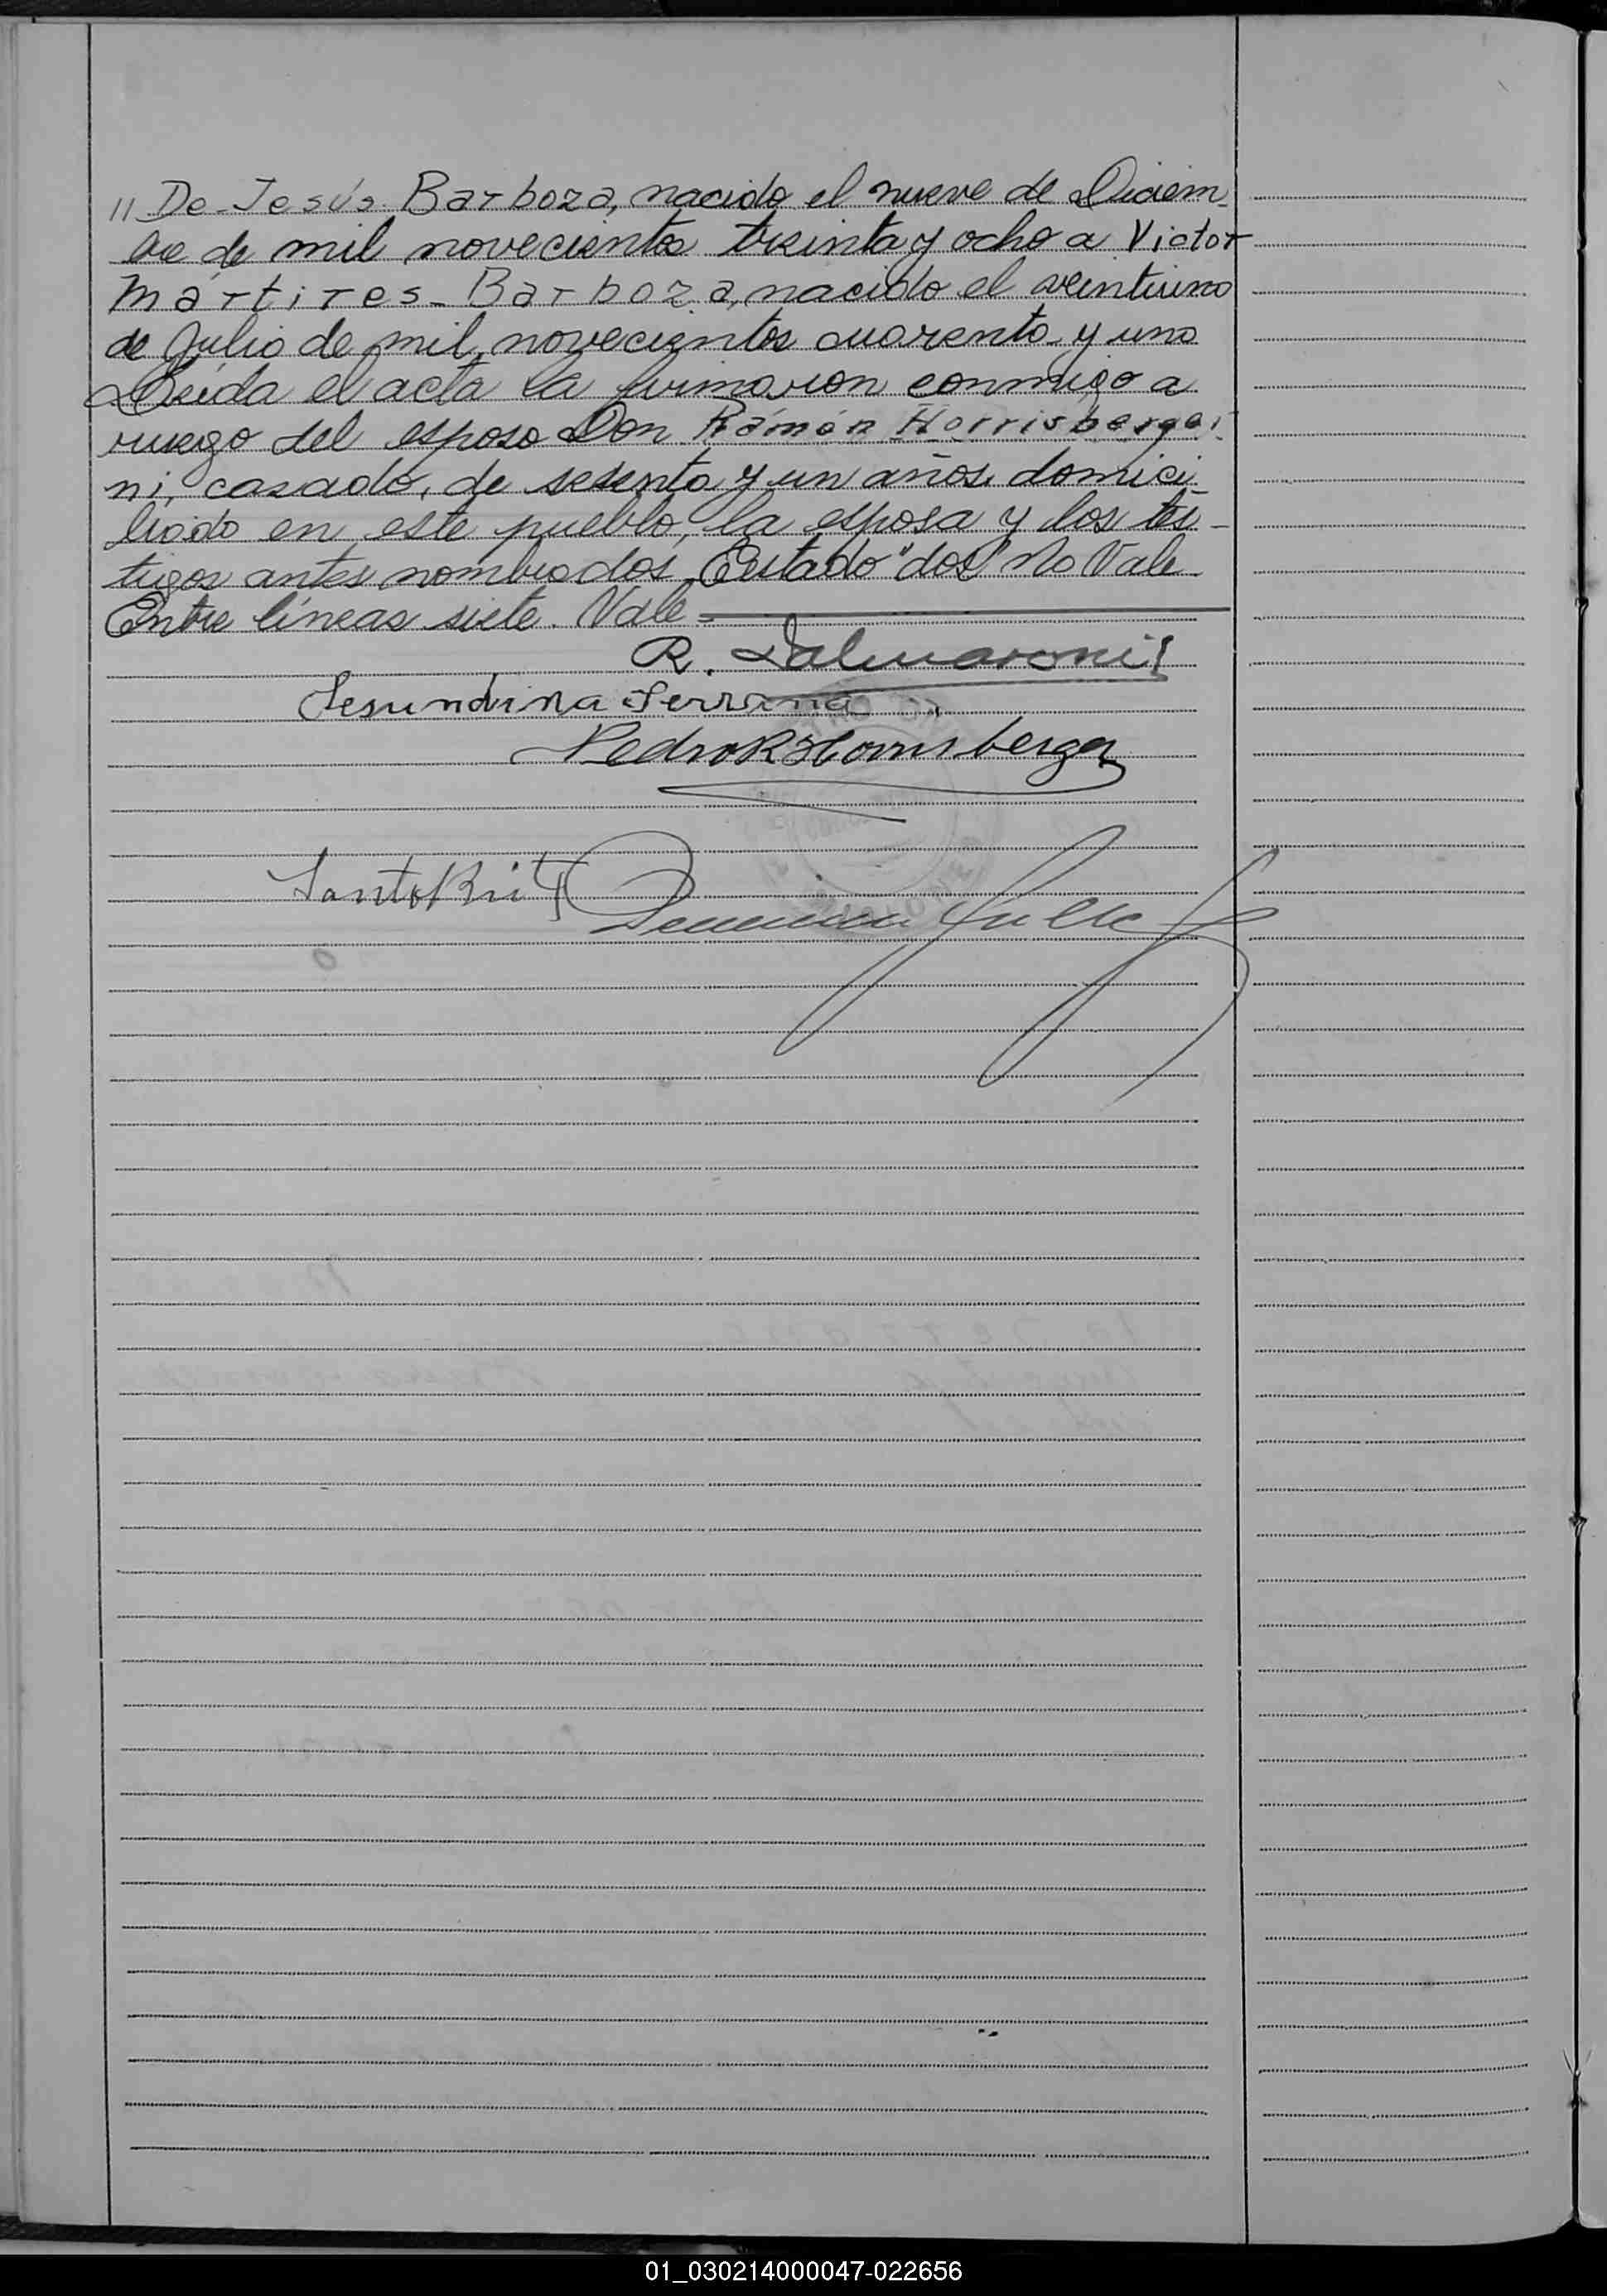 " De-Jesús Barboza, nacido el nueve de Diciem-
bre de mil novecientos treinta y ocho a Victor
Mártires-Barboza, nacido el veintiuno
de Julio de mil, novecientos cuarenta y uno
Leída el acta la firmaron conmigo a
ruego del esposo Don Rámón Horrisberge
ni, casado, de sesenta y un años domici-
liado en este pueblo, la esposa y los tes-
tigos antes nombrados. Testado "dos" No Vale
Entre líneas siete. Vale
R. Dalmaroni
Segundina Serrana
Pedro R Horrisberger
Santo
01_030214000047-022656